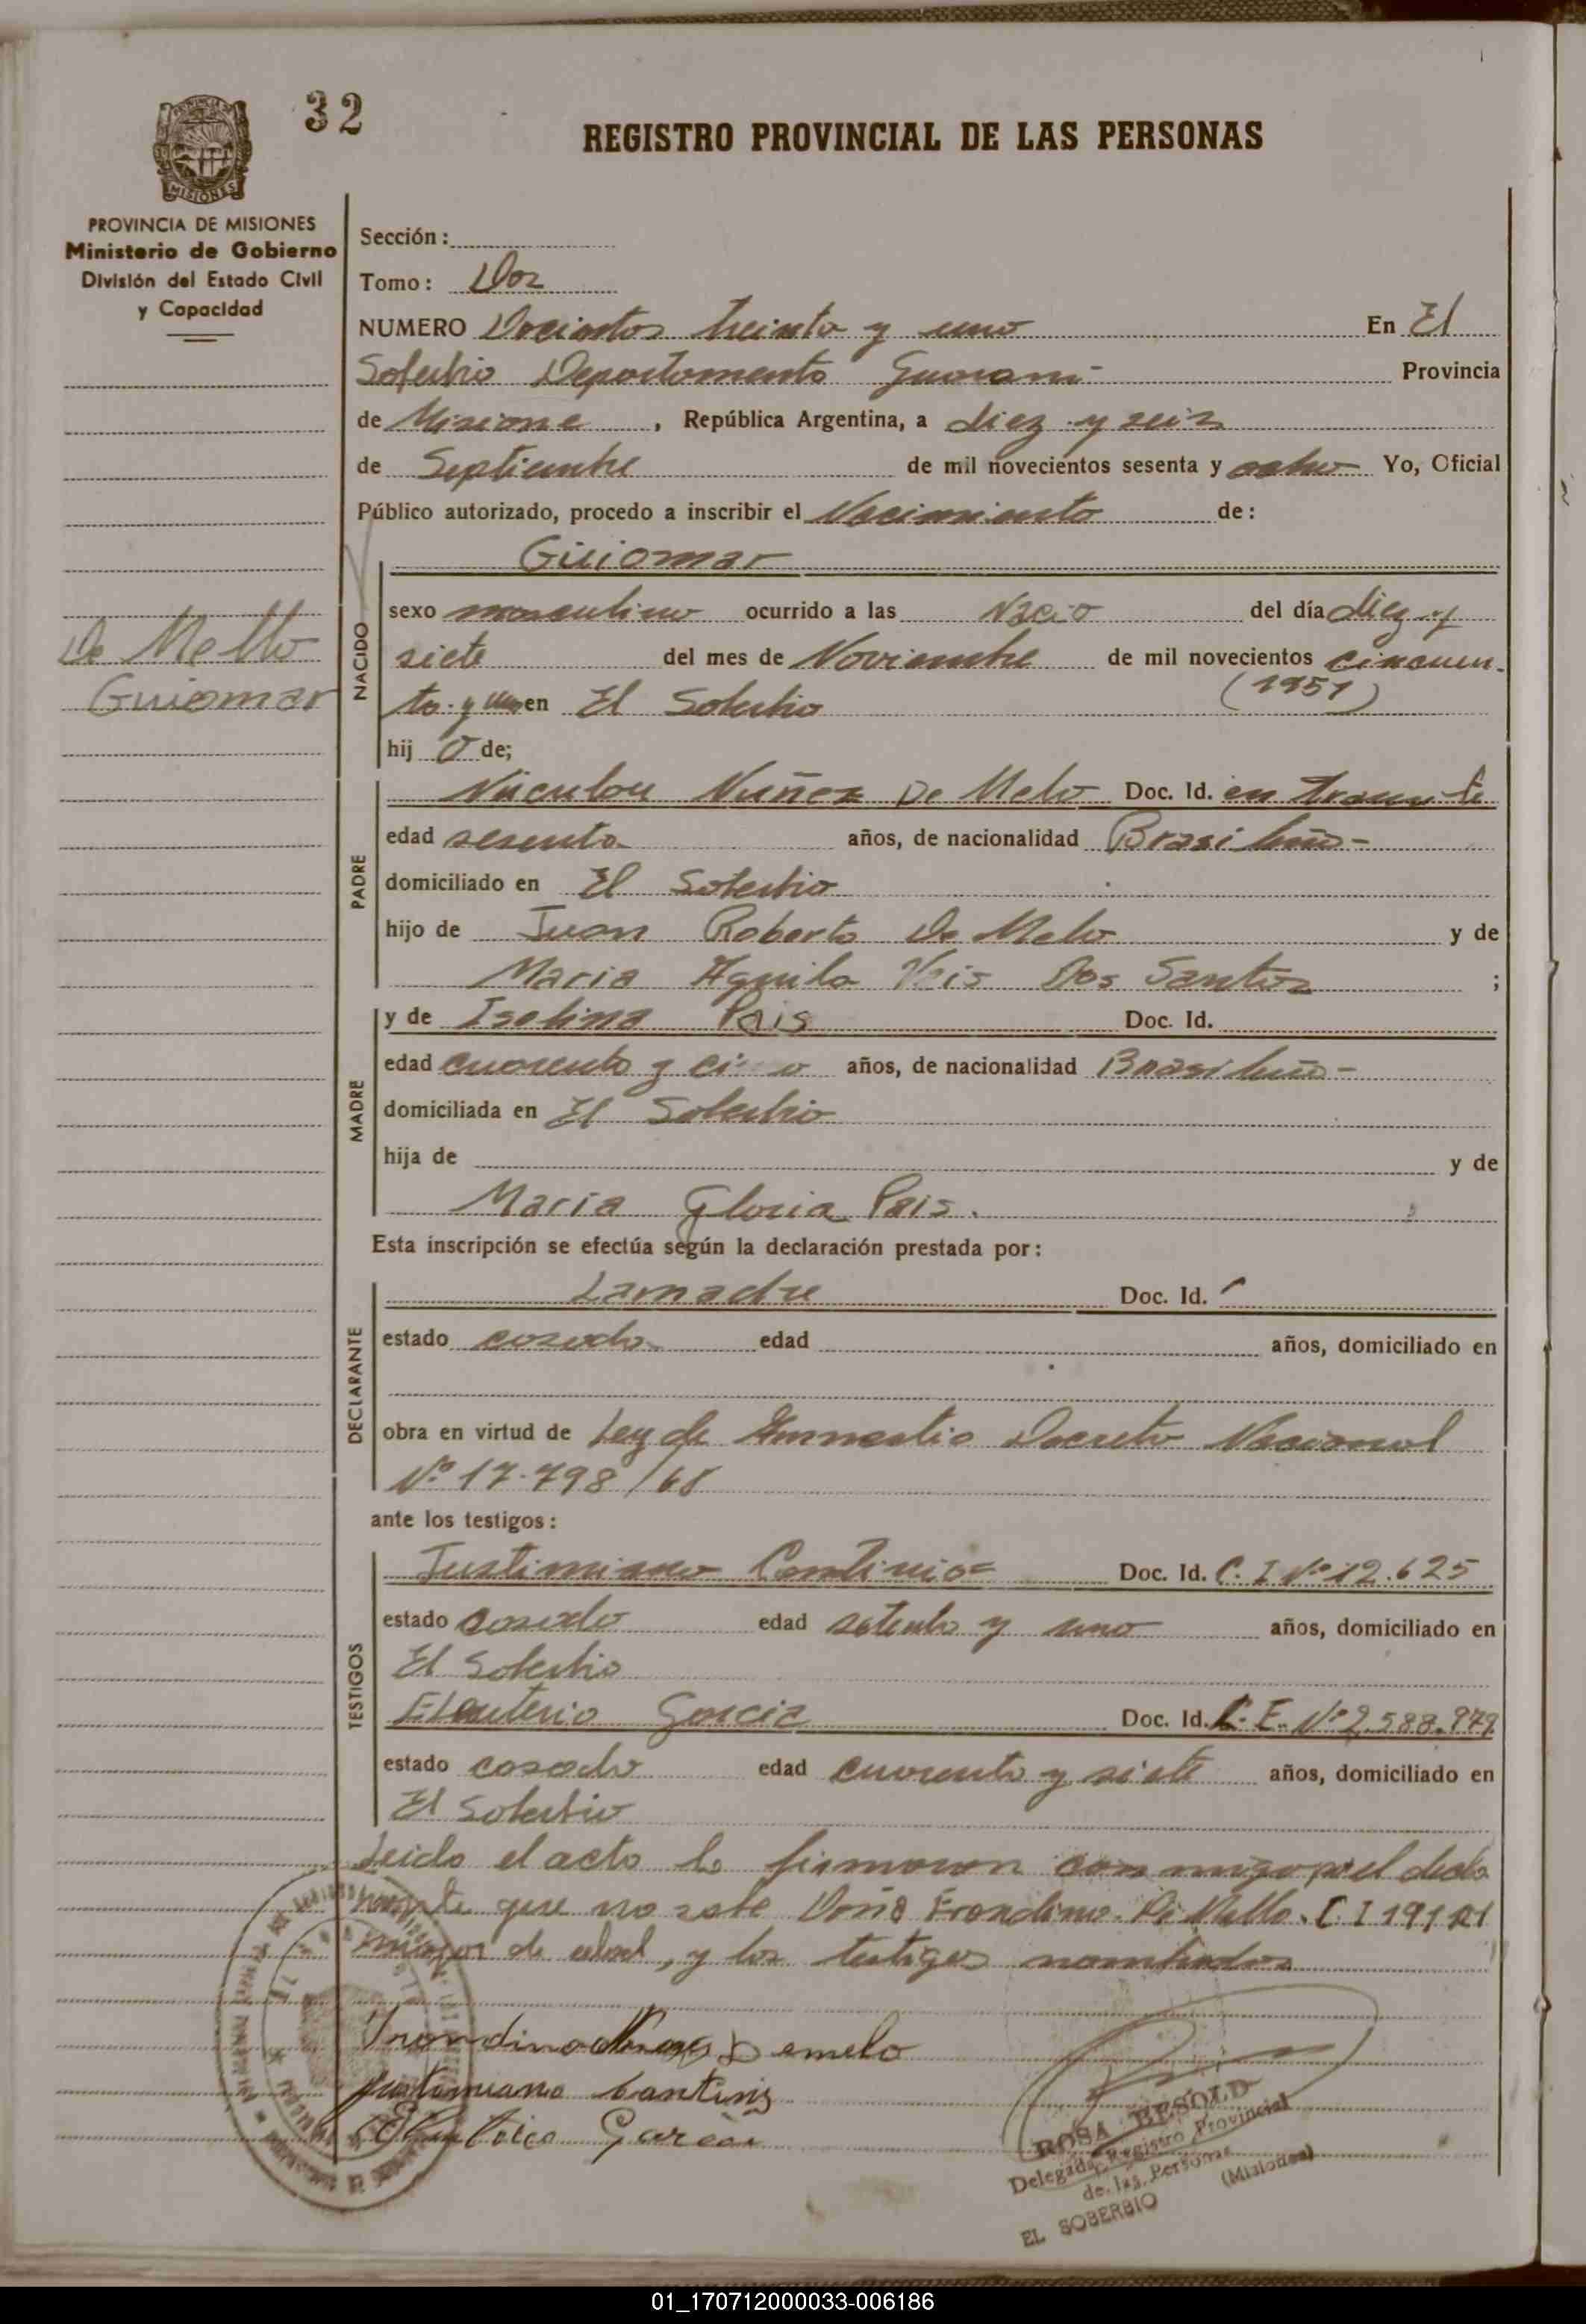 32
REGISTRO PROVINCIAL DE LAS PERSONAS
MISIONES
PROVINCIA DE MISIONES
Ministerio de Gobierno
División del Estado Civil
y Capacidad
De Mello
Guiomar
Sección:
Tomo: Dos
NUMERO Docientos treinta y uno En El
Soberbio Departamento Guarani Provincia
de Misione, República Argentina, a diez y seis
de Septiembre de mil novecientos sesenta y ocho Yo, Oficial
Público autorizado, procedo a inscribir el Nacimiento de:
NACIDO
Guiomar
sexo masculino ocurrido a las Nacio del día diez y
siete del mes de Noviembre de mil novecientos cincuen-
ta y uno en El Soberbio (1951)
hij o de;
PADRE
Nuñez De Melo Doc. Id. en tramite
edad sesenta años, de nacionalidad Brasileño-
domiciliado en El Soberbio
hijo de Juan Roberto De Melo y de
Maria Aguila Dos Santos ;
MADRE
y de Isolina Pais Doc. Id.
edad cuarenta y años, de nacionalidad Brasileño-
domiciliada en El Soberbio
hija de y de
Maria Gloria Pais.
Esta inscripción se efectúa según la declaración prestada por:
DECLARANTE
La madre Doc. Id.
estado casada edad años, domiciliado en
obra en virtud de Ley de Amnestia Decreto Nacional
Nº 17.798/68
ante los testigos:
TESTIGOS
Justimiano Doc. Id. C. I Nº 12.625
estado casado edad setenta y uno años, domiciliado en
El Soberbio
Eleuterio Garcia Doc. Id. L. E. Nº 2.588.979
estado casado edad cuarenta y siete años, domiciliado en
El Soberbio
Leido el acta la firmaron conmigo por el decla
rante que no sabe Frondino De Mello. C I
mayor de edad, y los testigos nombrados
Demelo
Justimiano
Garcia
ROSA BESOLD
Delegada Registro Provincial
de las Personas
EL SOBERBIO (Misiones)
01_170712000033-006186